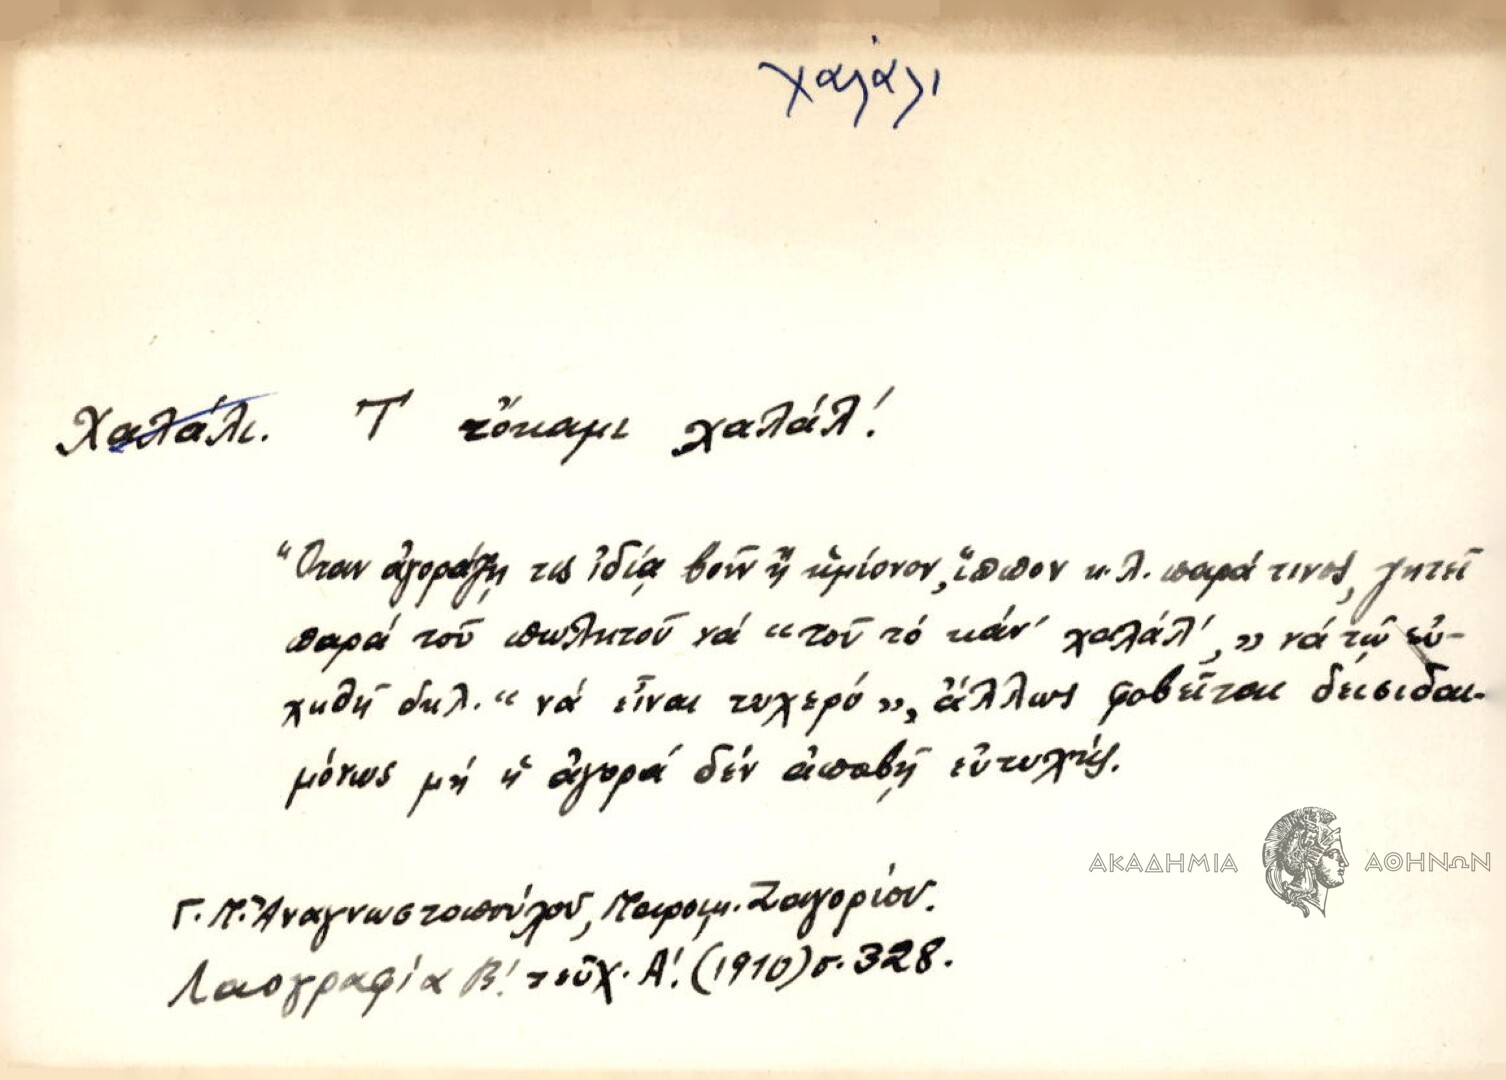 χαλάλι
Χαλάλι. Τ' τὄκαμι χαλάλ'!
"Όταν ἀγοράζῃ τις ἰδίᾳ βοῦν ἢ ἡμίονον, ἵππον κ.λ. παρά τινος, ζητεῖ
παρά τοῦ πωλητοῦ νά "τοῦ τό κάν' χαλάλ'," νά τῷ εὐ-
χηθῇ δηλ. "νά εἶναι τυχερό", ἄλλως φοβεῖται δεισιδαι-
μόνως μή ἡ ἀγορά δέν ἀποβῇ εὐτυχής.
Γ. Π. Ἀναγνωστοπούλου, Παροιμ. Ζαγορίου.
Λαογραφία Β'. τεῦχ. Α'. (1910) σ. 328.
ΑΚΑΔΗΜΙΑ ΑΘΗΝΩΝ